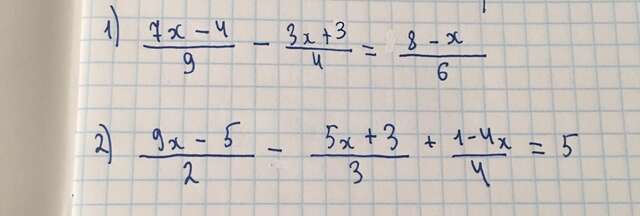 1) (7x - 4)/9 - (3x + 3)/4 = (8 - x)/6
2) (9x - 5)/2 - (5x + 3)/3 + (1 - 4x)/4 = 5